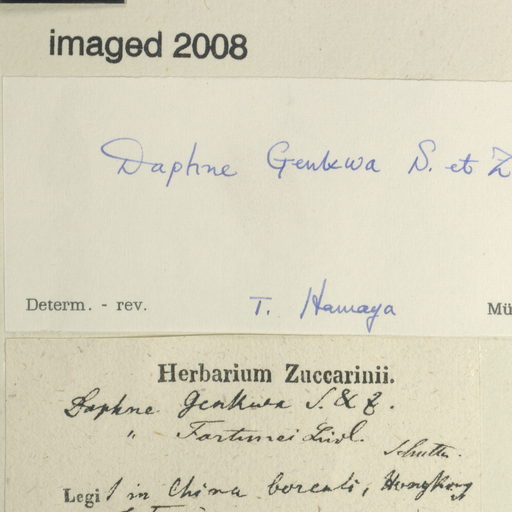 imaged 2008
Daphne Genkwa S. et Z
Determ. - rev. T. Hamaya Mü
Herbarium Zuccarinii.
Daphne Genkwa S. & Z.
" Fortunei Lindl.
Legi in China boreali, Hongkong